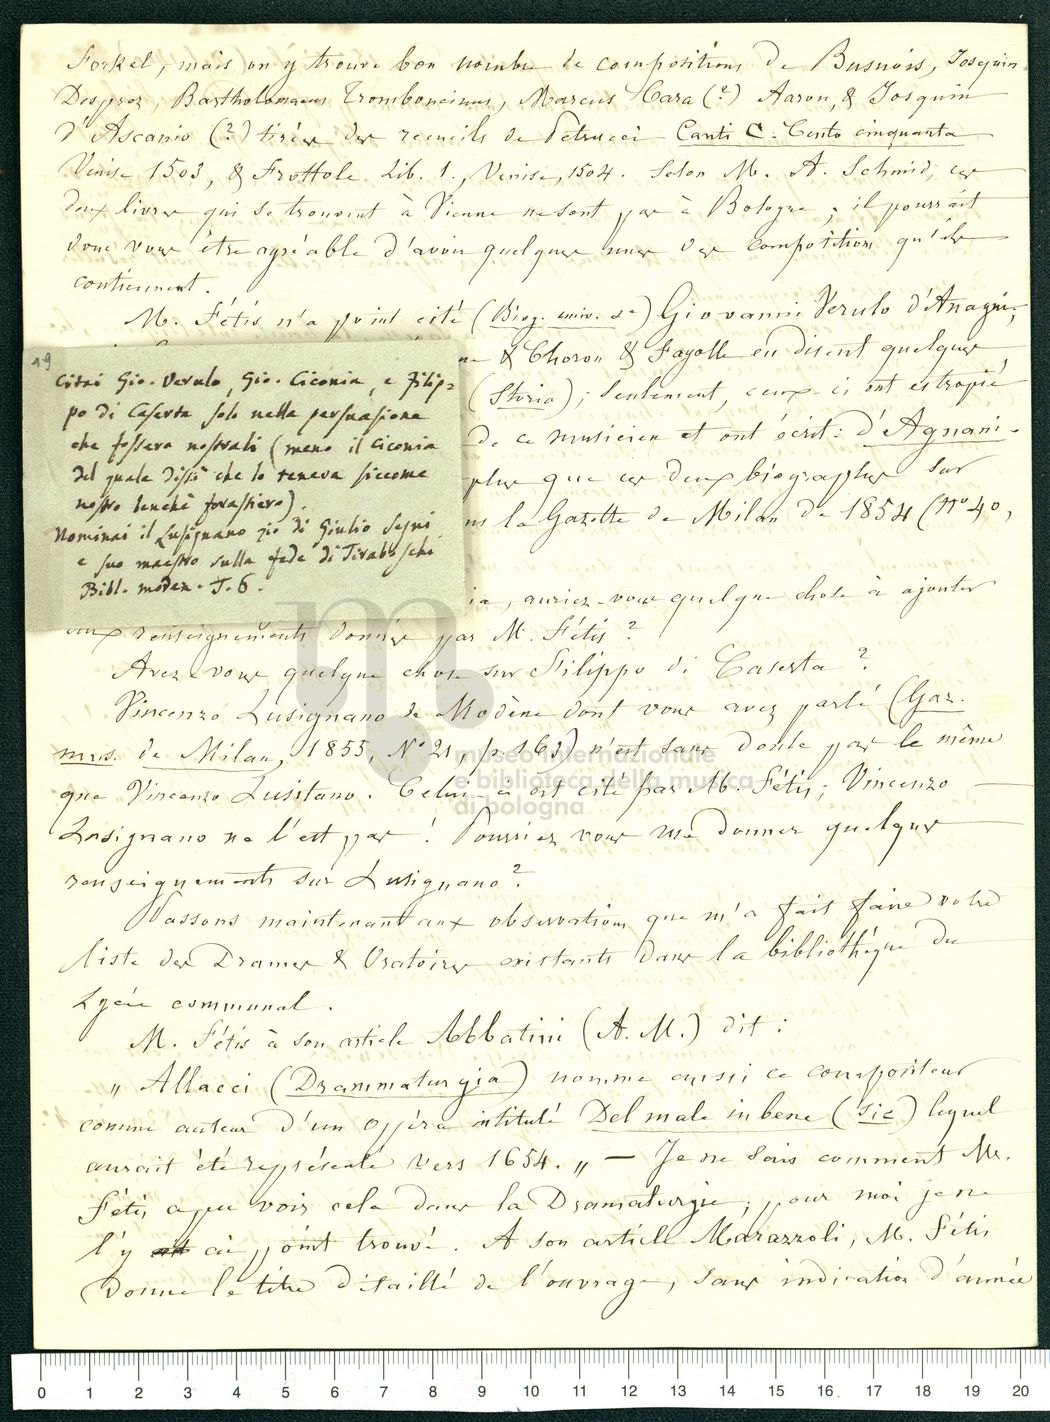 Forkel, mais on y trouve bon nombre de compositions de Busnois, Josquin
Desprez, Bartholomaeus Tromboncinus, Marcus Cara (?) Aaron, & Josquin
d'Ascanio (?) tirées des recueils de Petrucci Canti C. Cento cinquanta
Venise 1503, & Frottole Lib. 1., Venise, 1504. Selon M. A. Schmid, ces
deux livres qui se trouvent à Vienne ne sont pas à Bologne ; il pourrait
donc vous être agréable d'avoir quelques unes des compositions qu'ils
contiennent.
M. Fétis n'a point cité (Biog. univ. de) Giovanni Verulo d'Anagni,
& Choron & Fayolle en disent quelques
(Storia) ; seulement, ceux-ci ont estropié
de ce musicien et ont écrit : d'Agnani.
plus que ces deux biographes sur
la Gazette de Milan de 1854 (No 40,
19
Citai Gio. Verulo, Gio. Ciconia, e Filip=
po di Caserta solo nella persuasione
che fossero nostrali (meno il Ciconia
del quale dissi che lo teneva siccome
nostro benchè forastiero).
Nominai il Lusignano zio di Giulio Segni
e suo maestro sulla fede di Tiraboschi
Bibl. moden. T. 6.
, auriez-vous quelque chose à ajouter
aux renseignements donnés par M. Fétis ?
Avez-vous quelque chose sur Filippo di Caserta ?
Vincenzo Lusignano de Modène dont vous avez parlé (Gaz.
mus. de Milan, 1855, No 21, p. 163) n'est sans doute pas le même
que Vincenzo Lusitano. Celui-ci est cité par M. Fétis ; Vincenzo
Lusignano ne l'est pas ! Pourriez vous me donner quelques
renseignements sur Lusignano ?
Passons maintenant aux observations que m'a fait faire votre
liste des Drames & Oratoires existants dans la bibliothèque du
Lycée communal.
M. Fétis à son article Abbatini (A. M.) dit :
„ Allacci (Drammaturgia) nomme aussi ce compositeur
comme auteur d'un opéra intitulé Del male in bene (sic) lequel
aurait été représenté vers 1654. „ — Je ne sais comment M.
Fétis a pu voir cela dans la Dramaturgie ; pour moi je ne
l'y ai point trouvé. A son article Marazzoli, M. Fétis
donne le titre détaillé de l'ouvrage, sans indication d'année
museo internazionale
e biblioteca della musica
di bologna
0 1 2 3 4 5 6 7 8 9 10 11 12 13 14 15 16 17 18 19 20